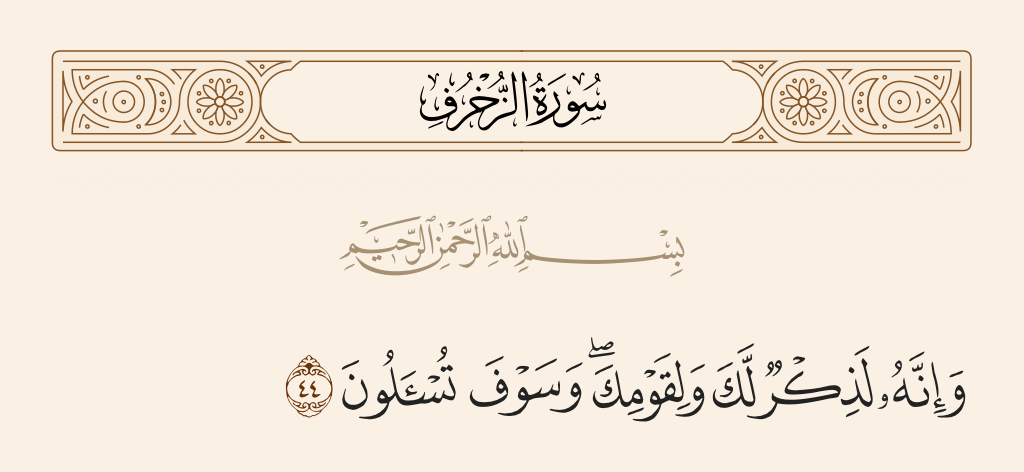 سُورَةُ الزُّخْرُفِ
بِسْمِ ٱللَّهِ ٱلرَّحْمَٰنِ ٱلرَّحِيمِ
وَإِنَّهُۥ لَذِكْرٌ لَّكَ وَلِقَوْمِكَ ۖ وَسَوْفَ تُسْـَٔلُونَ ٤٤